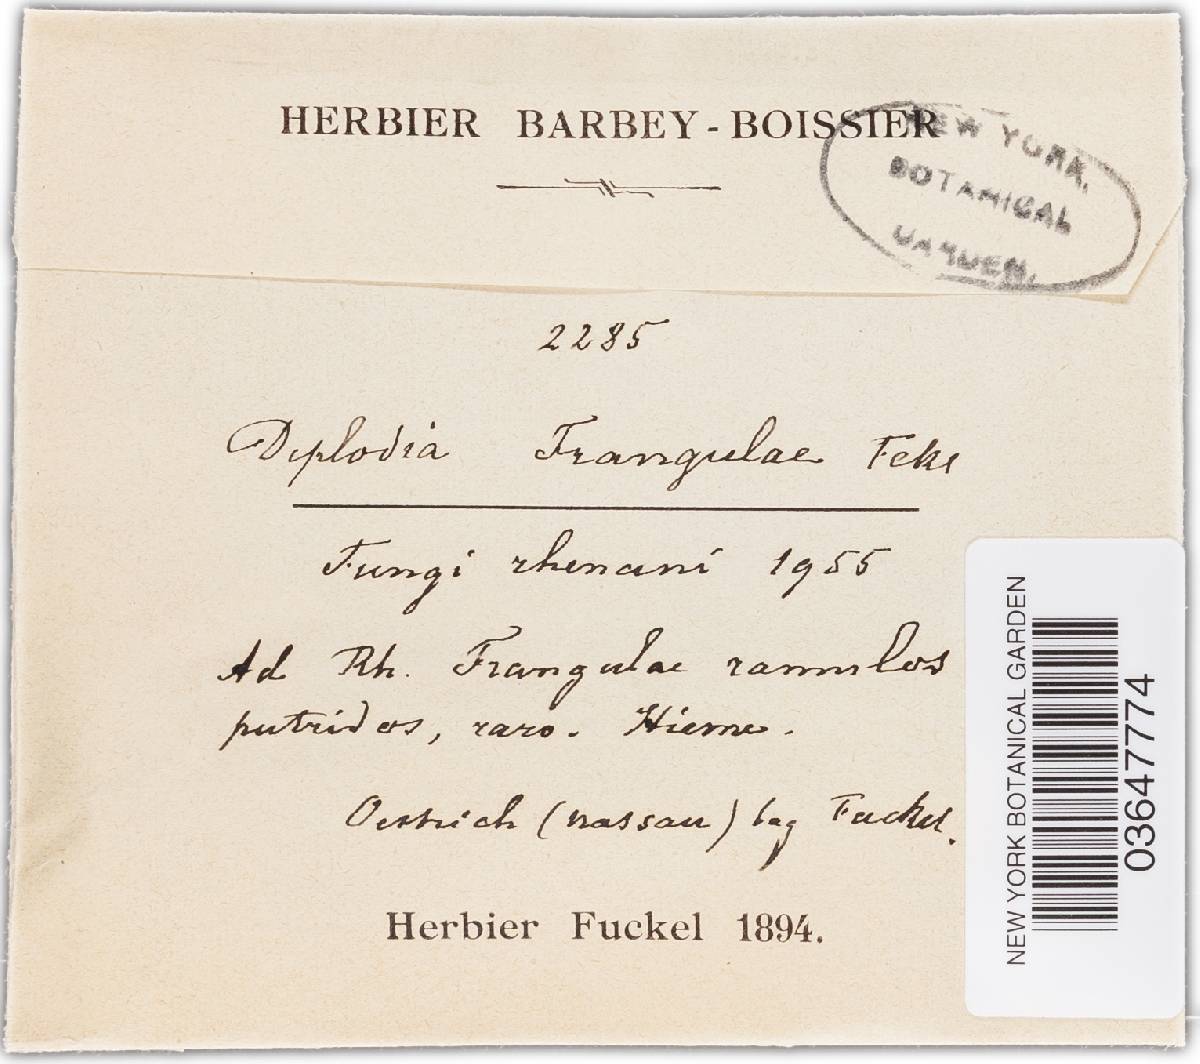 HERBIER BARBEY-BOISSIER
NEW YORK.
BOTANICAL
GARDEN.
2285
Diplodia Frangulae Fckl
Fungi rhenani 1955
Ad Rh. Frangulae ramulos
putridos, raro. Hieme.
Oestrich (Nassau) leg Fuckel.
Herbier Fuckel 1894.
NEW YORK BOTANICAL GARDEN
03647774